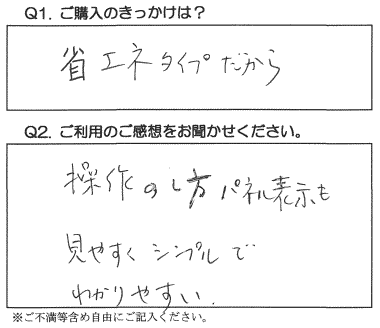 Q1. ご購入のきっかけは？
省エネタイプだから
Q2. ご利用のご感想をお聞かせください。
操作のし方パネル表示も
見やすくシンプルで
わかりやすい.
※ご不満等含め自由にご記入ください。